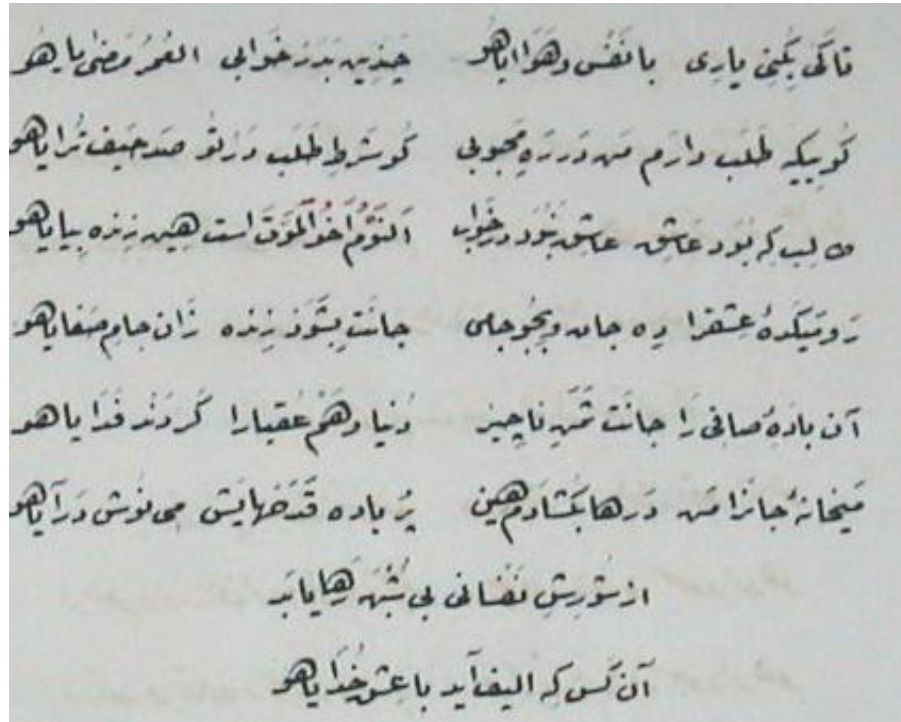 تاكَى بِكُنِى يارِى با نَفْس وهَوَا ياهو چَنْدِين بَدَرْ خَوابى العُمْرُ مَضٰى ياهُو
كُوييكه طَلَب دارَم مَن دَررَهِ محبوبى كُو شَرطِ طَلَب دَرْ تُو صَد حَيف تُرا ياهو
طالب كِه بُوَد عَاشِق عاشِق نَبُوَد در خَواب اَلنَّوْمُ اَخُو الْمَوْت است هِين زنده بِيا ياهو
رَو مَيكَدۀ عِشقرا دِه جان وبِجُو جامى جانَتْ بِشَوَدْ زِنده زَان جامِ صَفا ياهو
آن بادۀ صافى رَا جانَت ثَمَنِ ناچيز دُنيا وهَمْ عُقبارا كَردَنْد فَدَا ياهو
مَيخانۀ جانرا مَن دَرها بَكُشادَم هين پُر باده قَدَحهايَش مى نُوش دَرآ ياهو
از شُورِشِ نَفْسانى بى شُبْهَ رَهِا يابَد
آن كَس كِه اليف آيد با عِشقِ خُدَا ياهو